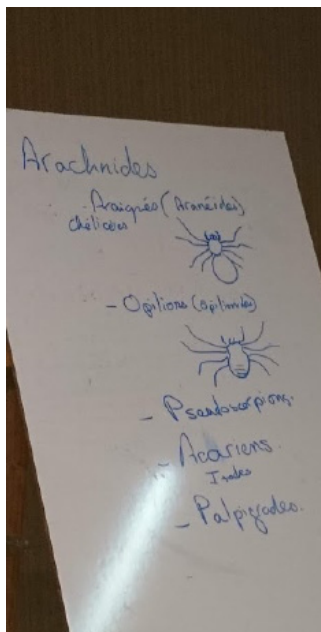 Arachnides
- Araignés (Aranéides)
chélicères
- Opilions (Opilionides)
- Pseudoscorpions.
- Acariens.
Ixodes
- Palpigrades.